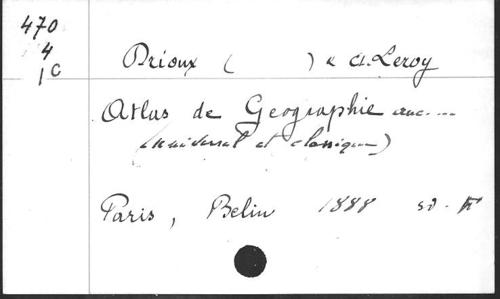 470
4
1c
Drioux ( ) & Ch. Leroy
Atlas de Geographie anc....
(universel et classique)
Paris, Belin 1888 F°